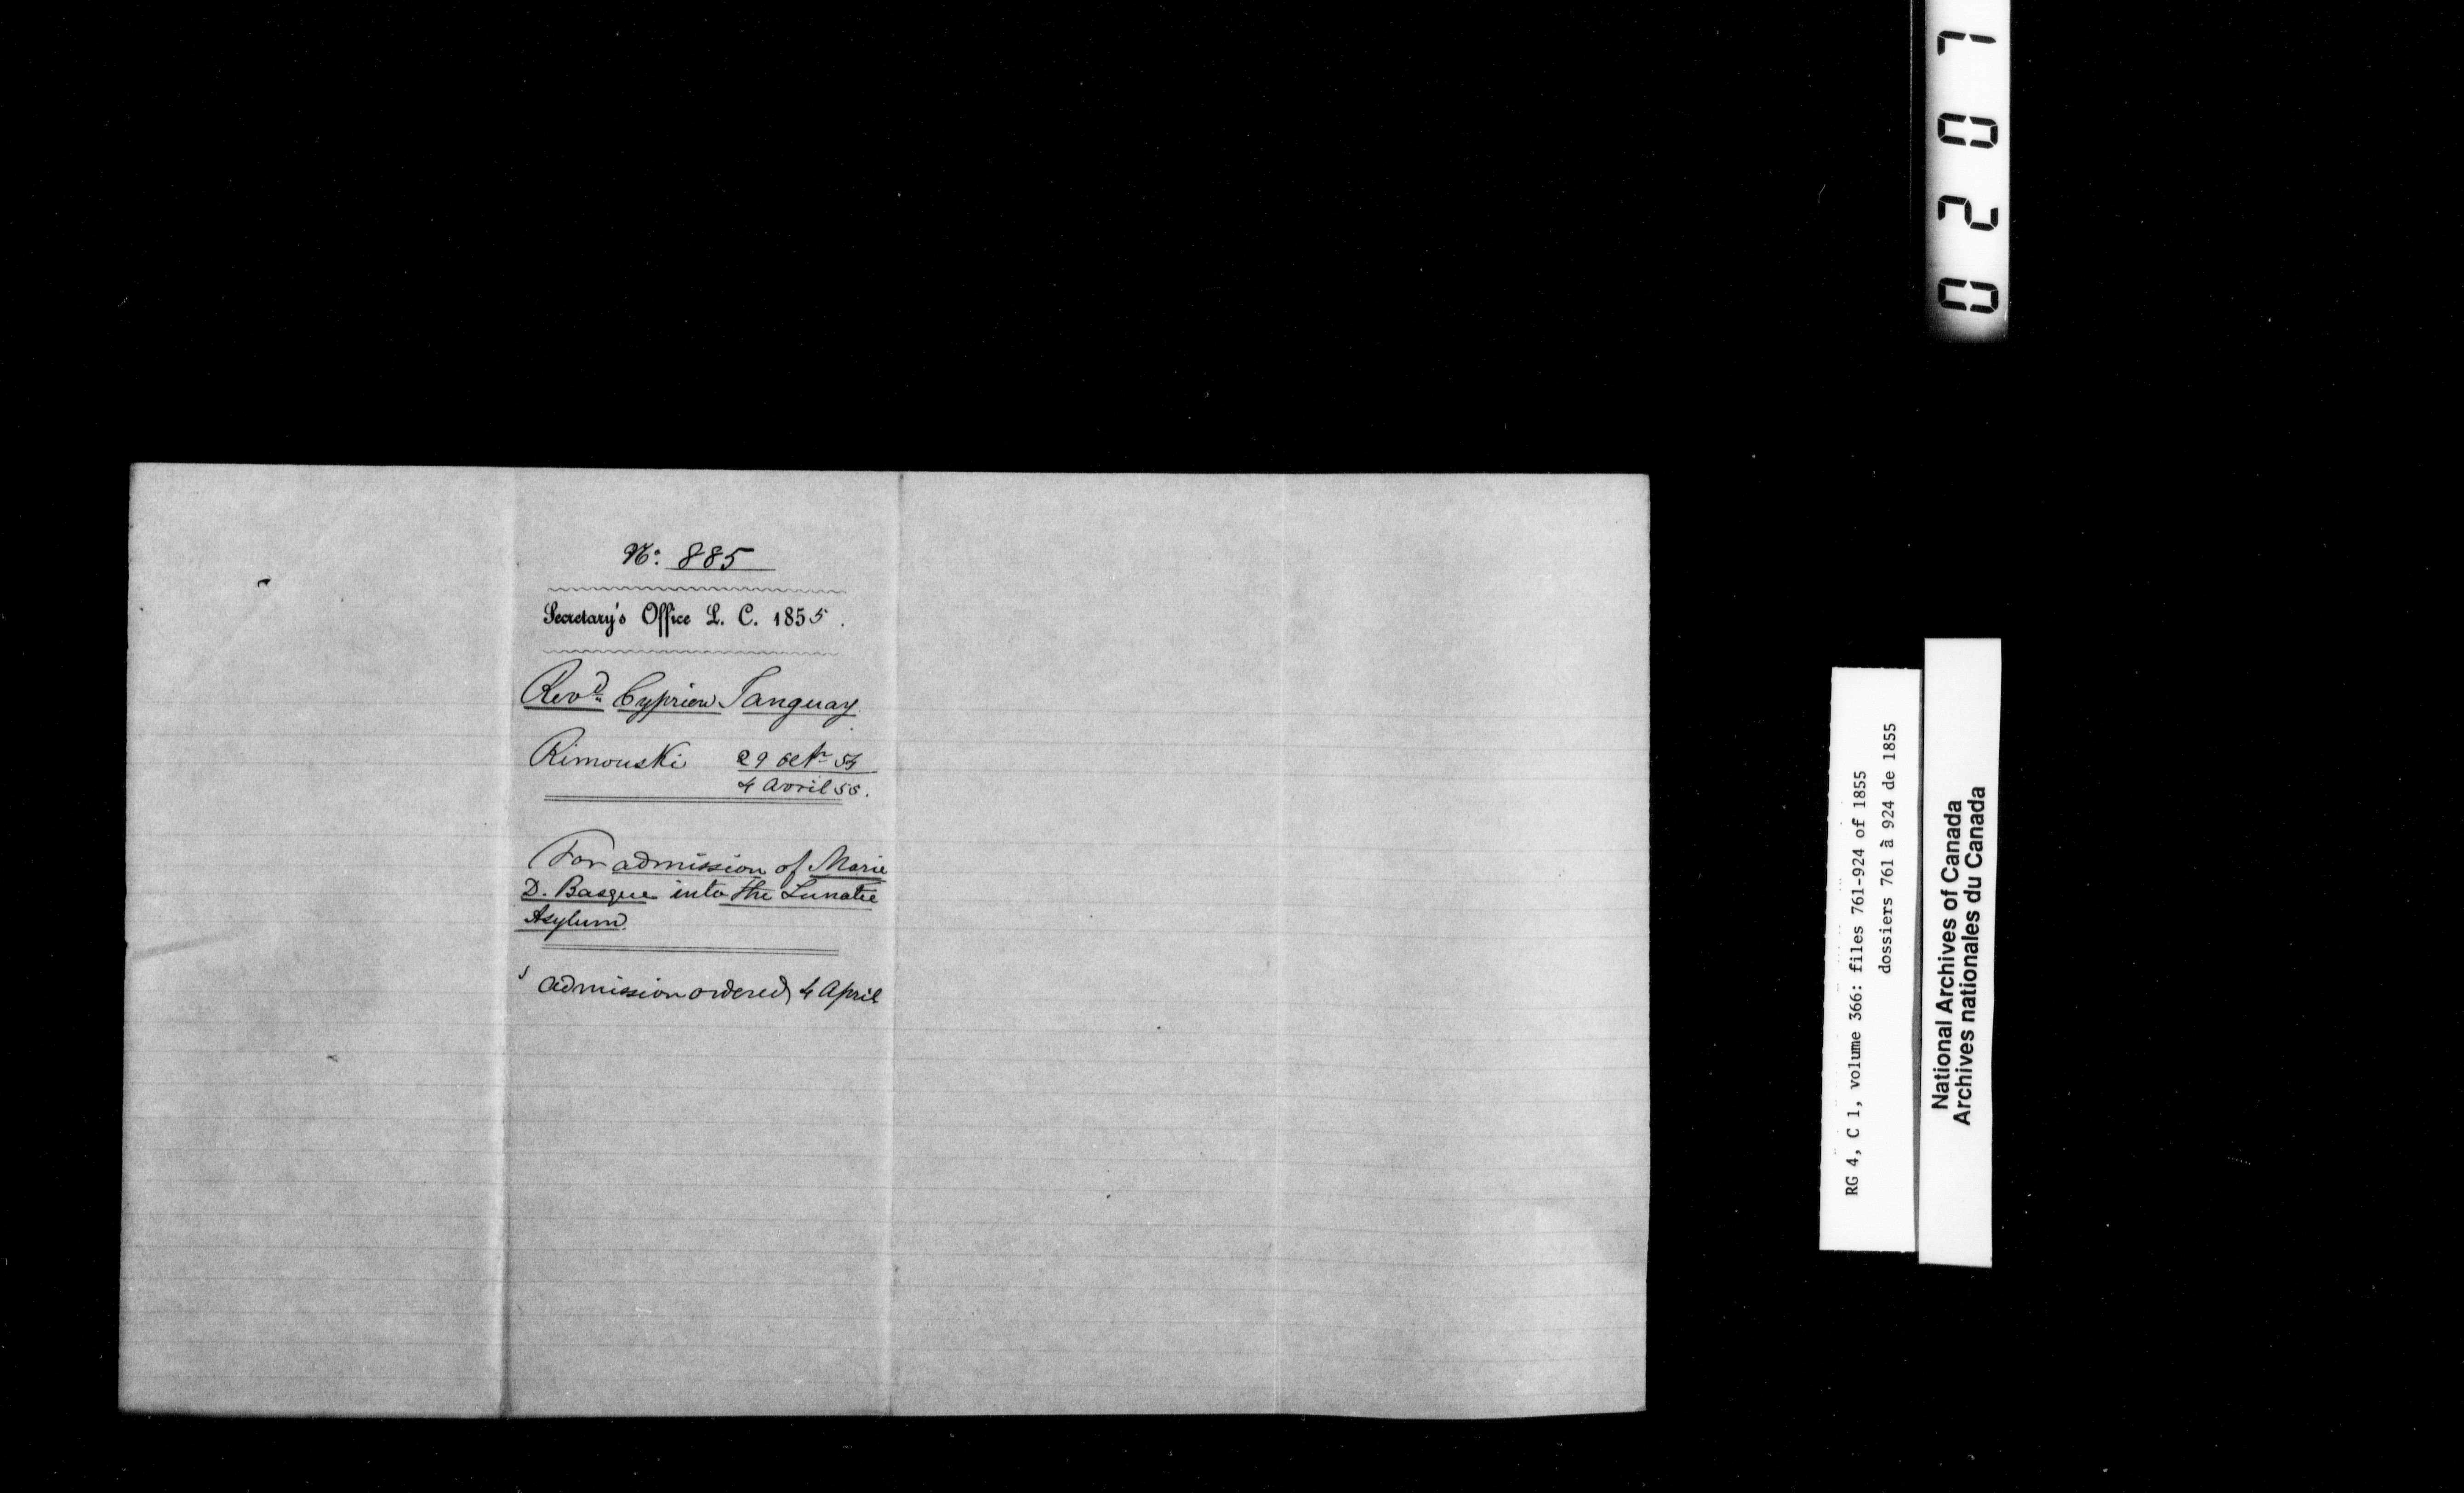 No. 885
Secretary's Office L. C. 1855.
Revd. Cyprien Tanguay
Rimouski 29 Octr 54
4 Avril 55.
For admission of Marie
D. Basque into the Lunatic
Asylum
Admission ordered 4 April
0207
RG 4, C 1, volume 366: files 761-924 of 1855
dossiers 761 à 924 de 1855
National Archives of Canada
Archives nationales du Canada